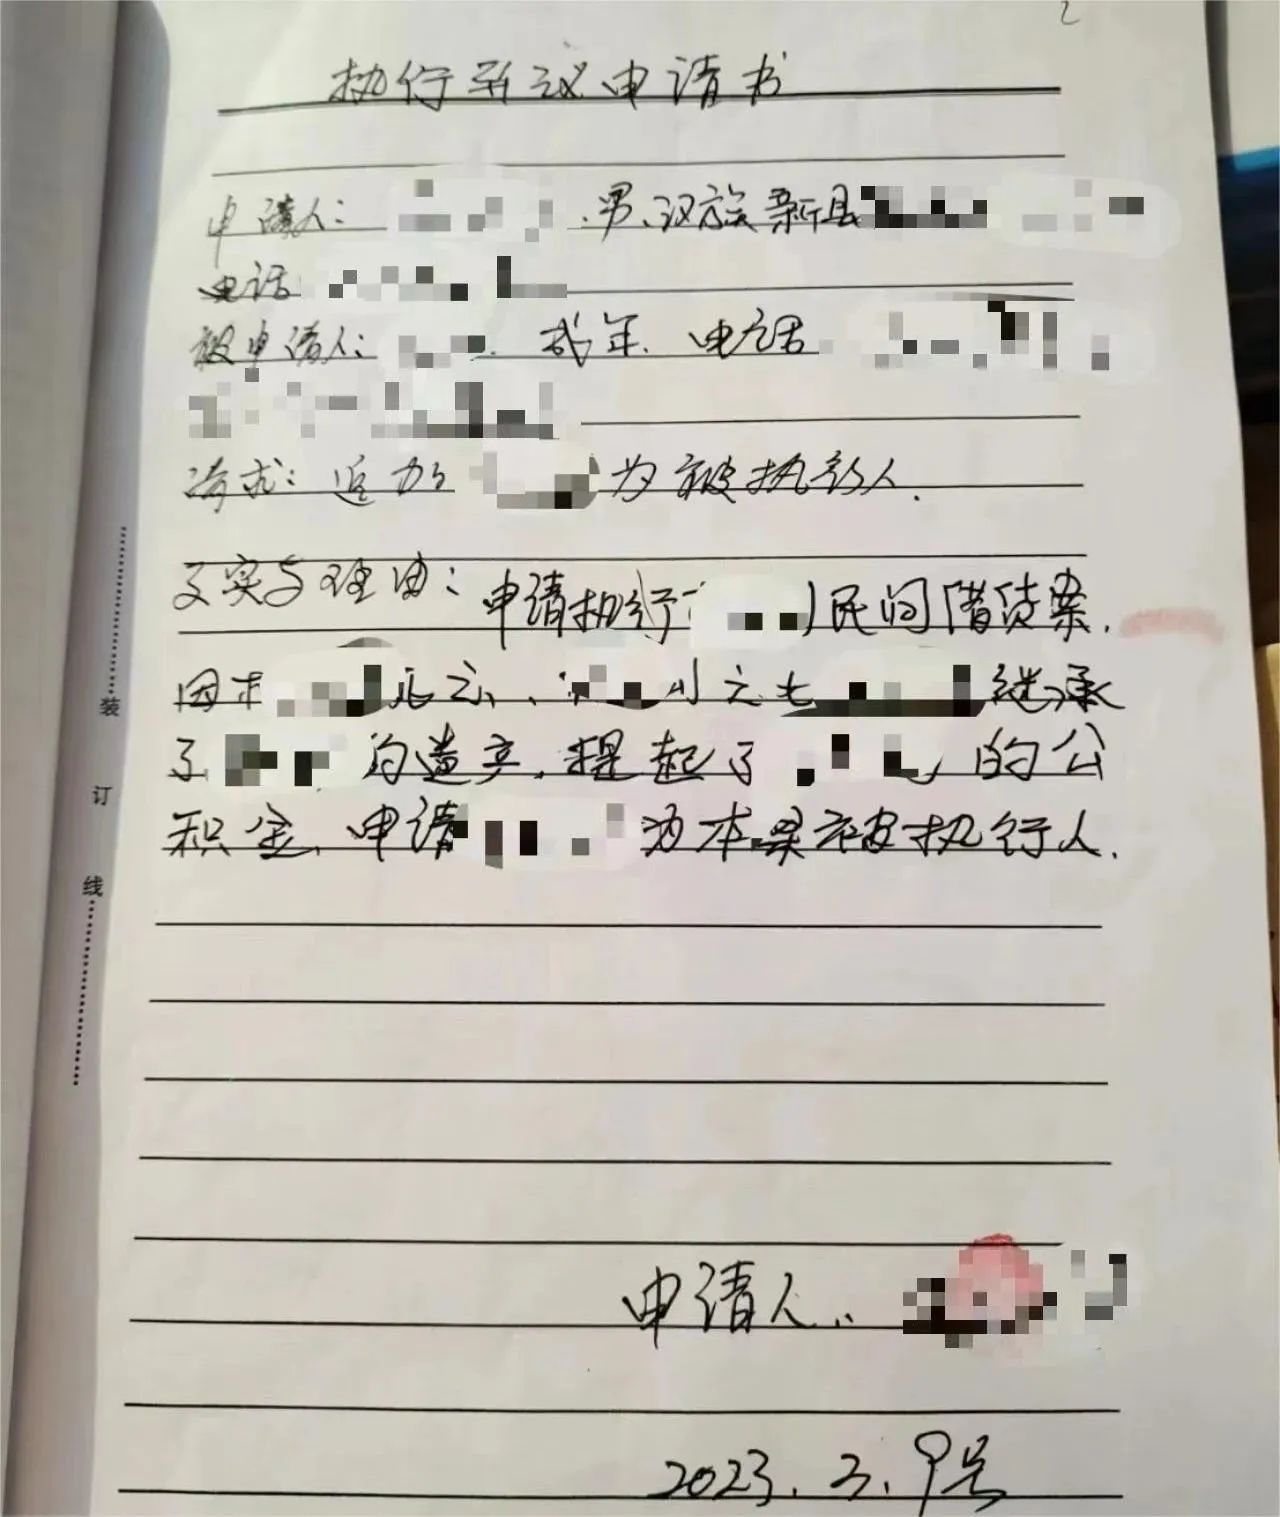 2
执行异议申请书
申请人: 男、汉族新县
电话
被申请人: 成年. 电话
请求: 追加 为被执行人.
实与理由: 申请执行 民间借贷案.
因 死亡、 之 继承
了 的遗产. 提起了 的公
积金、申请 为本案被执行人.
申请人:
2023.3.9号
装
订
线